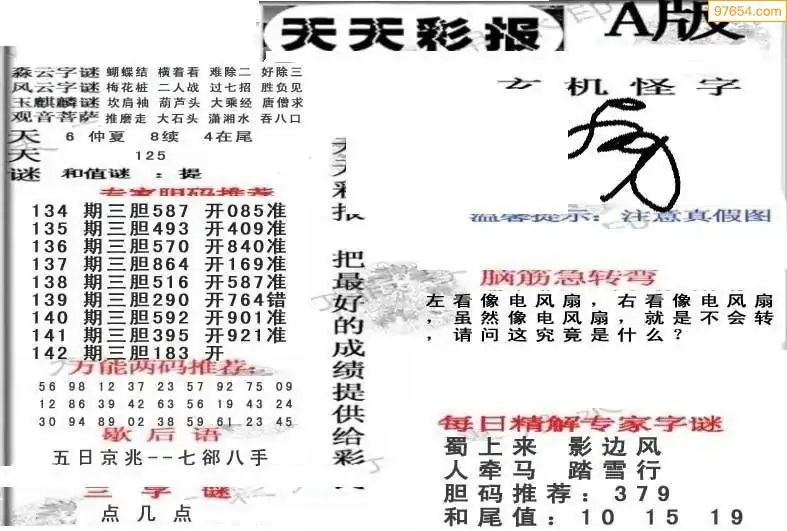 97654.com
天天彩报
A版
森云字谜 蝴蝶结 横着看 难除二 好除三
风云字谜 梅花桩 二人战 过七招 胜负见
玉麒麟谜 坎肩袖 葫芦头 大乘经 唐僧求
观音菩萨 推磨走 大石头 潇湘水 吞八口
天 6 仲夏 8续 4在尾
天 125
谜 和值谜 : 提
专家胆码推荐
134 期三胆587 开085准
135 期三胆493 开409准
136 期三胆570 开840准
137 期三胆864 开169准
138 期三胆516 开587准
139 期三胆290 开764错
140 期三胆592 开901准
141 期三胆395 开921准
142 期三胆183 开
万能两码推荐:
56 98 12 37 23 57 92 75 09
12 86 39 42 63 56 19 43 24
30 94 89 02 38 59 61 23 45
歇后语
五日京兆--七郤八手
三字谜
点几点
天天彩报 把最好的成绩提供给彩
玄机怪字
温馨提示: 注意真假图
脑筋急转弯
左看像电风扇，右看像电风扇
，虽然像电风扇，就是不会转
，请问这究竟是什么？
每日精解专家字谜
蜀上来 影边风
人牵马 踏雪行
胆码推荐: 379
和尾值: 10 15 19